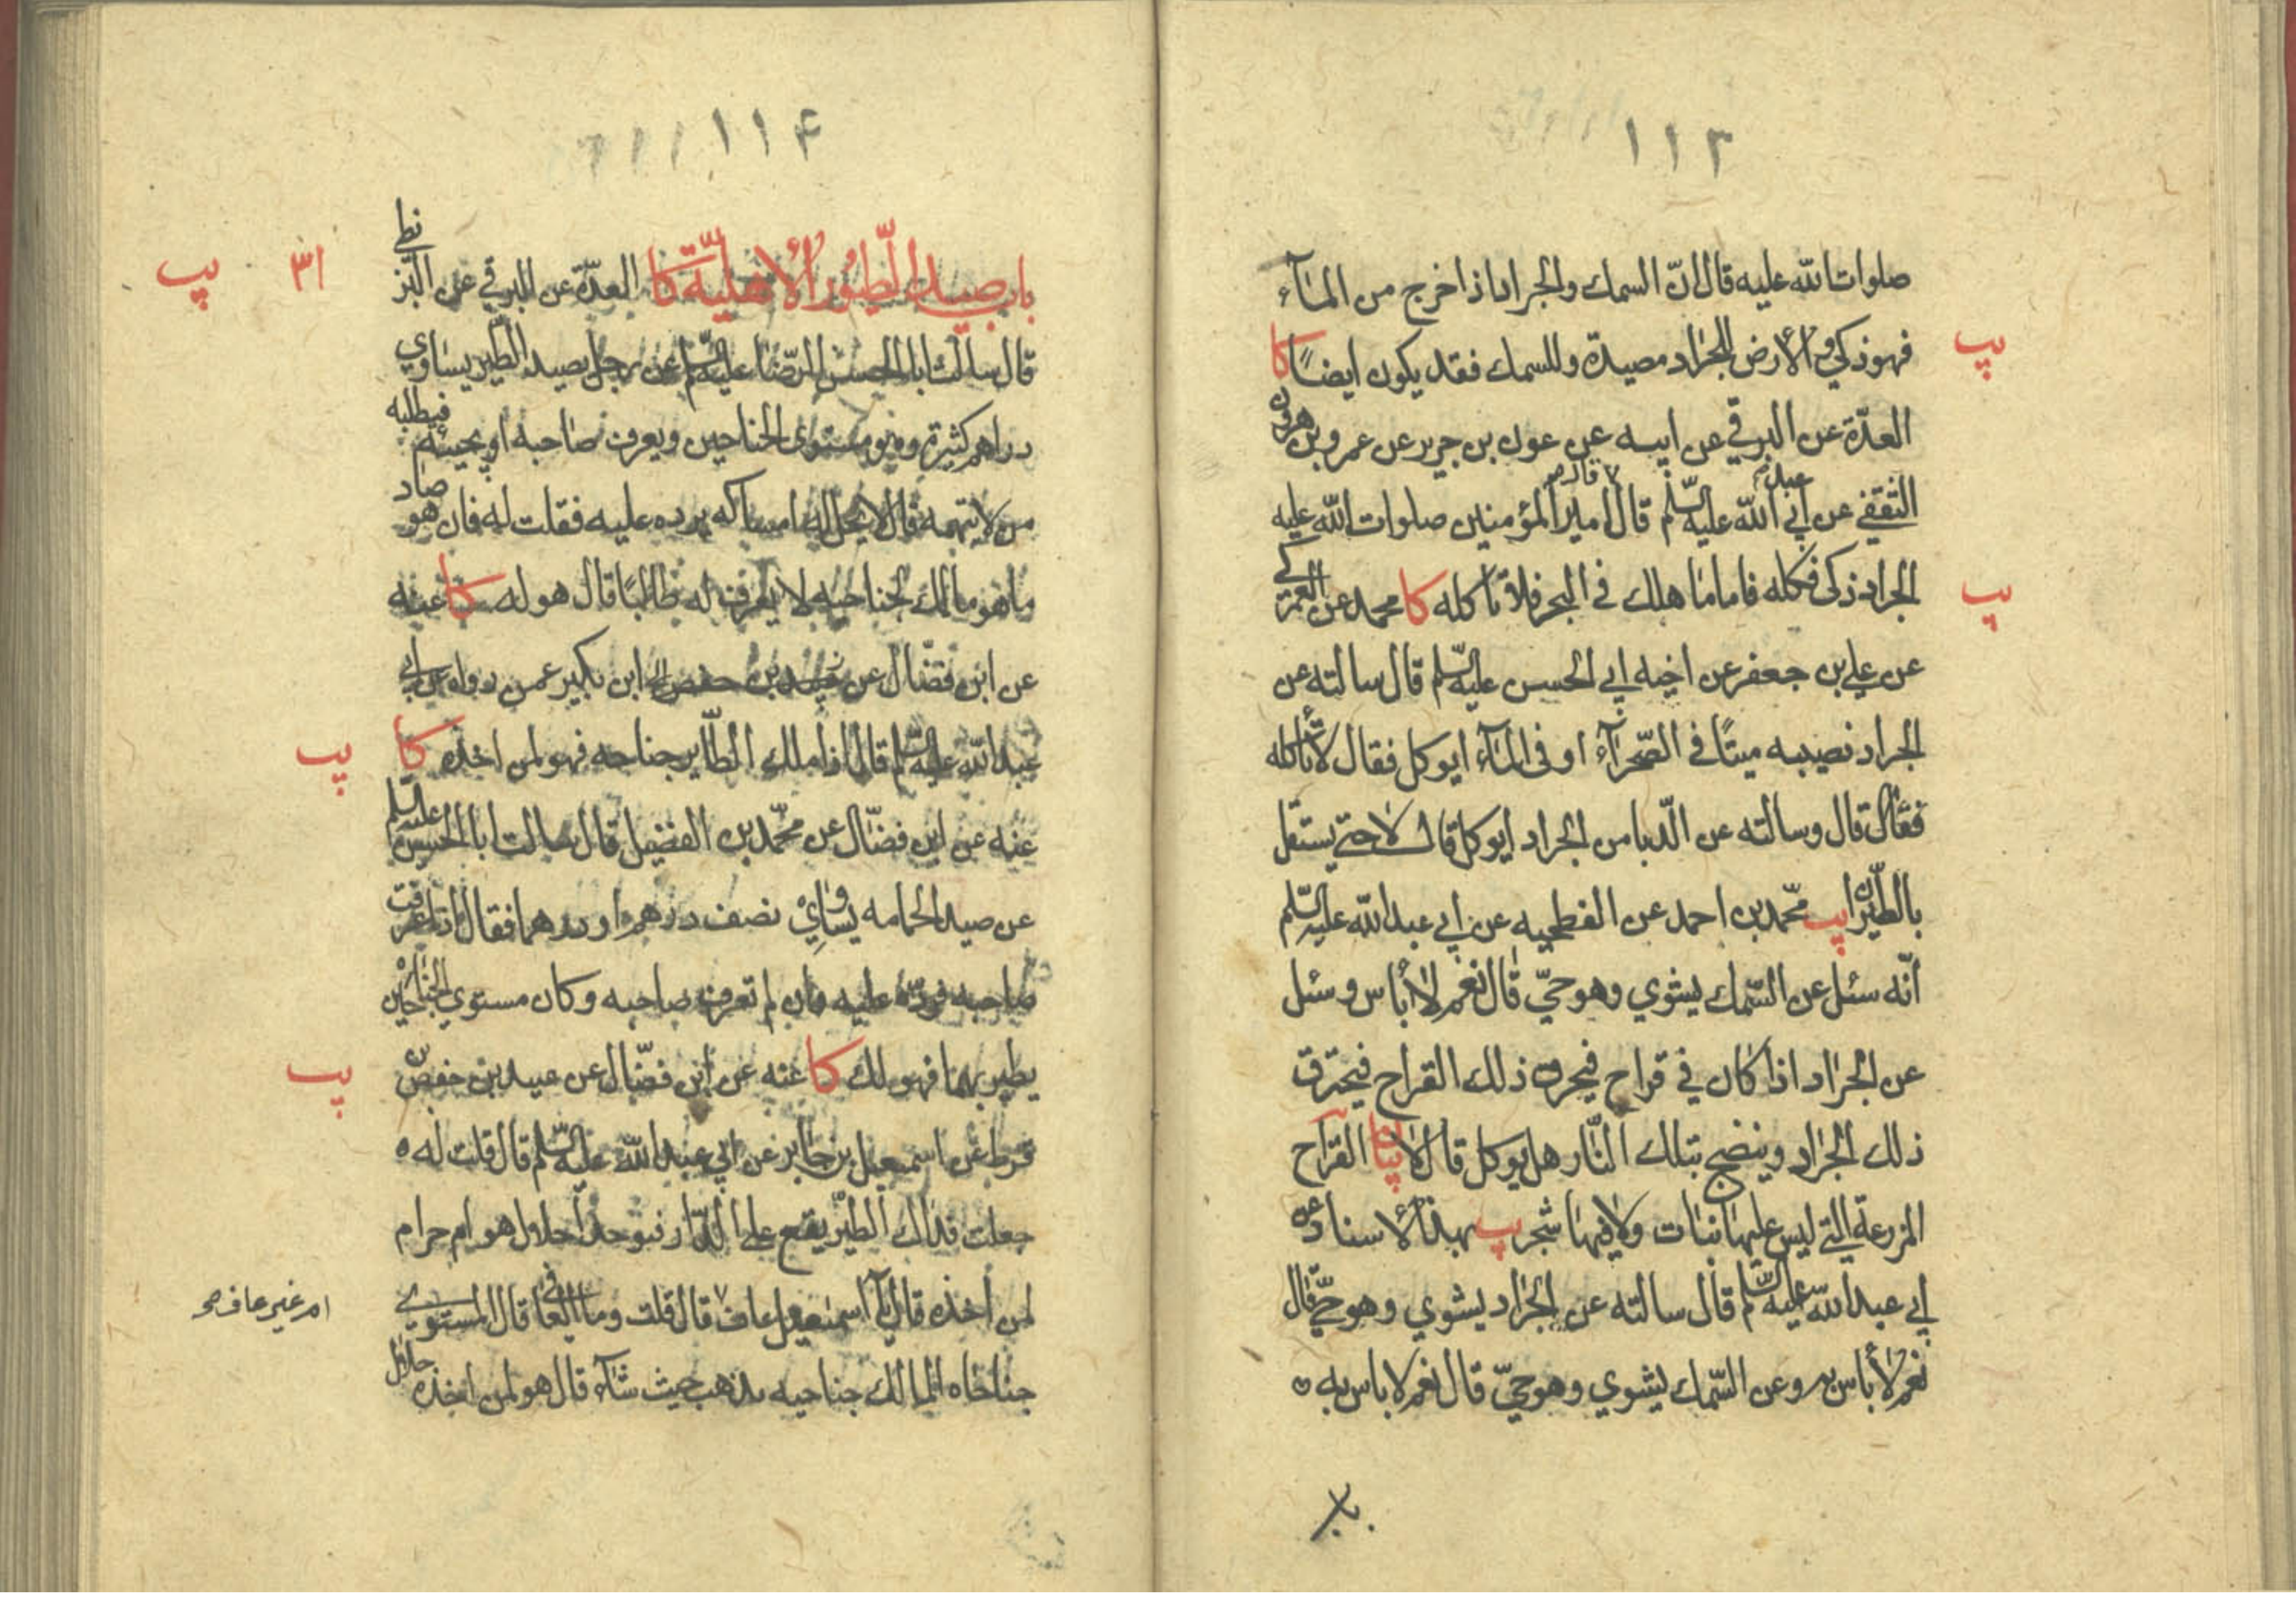 ١١٣
صلوات الله عليه قال ان السمك والجراد اذا خرج من المآء
فهو ذكي والارض للجراد مصيدة وللسمك فقد يكون ايضًا كا
پپ
العدّة عن البرقي عن ابيه عن عون بن جرير عن عمرو بن هرون
الثقفي عن ابي عبد الله عليه السلم قال قال امير المؤمنين صلوات الله عليه
الجراد ذكى فكله فاما ما هلك في البحر فلا تاكله كا محمد عن العمركي
پپ
عن علي بن جعفر عن اخيه ابي الحسن عليه السلم قال سالته عن
الجراد نصيبه ميتًا في الصّحرآء او فى المآء ايوكل فقال لا تاكله
قال وسالته عن الدّبا من الجراد ايوكل قال لا حتى يستقل
بالطيران يب محمّد بن احمد عن الفطحيه عن ابي عبد الله عليه السّلم
انّه سئل عن السّمك يشوي وهو حيّ قال نعم لا باس وسئل
عن الجراد اذا كان في قراح فيحرق ذلك القراح فيحترق
ذلك الجراد وينضج بتلك النّار هل يوكل قال لا بيا القراح
المزرعة التي ليس عليها نبات ولا فيها شجر يپ بهذا الاسناد عن
ابي عبد الله عليه السّلم قال سالته عن الجراد يشوي وهو حيّ قال
نعم لا باس به وعن السّمك يشوي وهو حيّ قال نعم لا باس به
١١۴
باب صيد الطّيور الاهليّة كا العدّة عن البرقي عن البزنطي
٣١ پپ
قال سالت ابا الحسن الرّضا عليه السّلم عن رجل يصيد الطّير يساوي
دراهم كثيرة وهو مستوى الجناحين ويعرف صاحبه او يجيئه فيطلبه
من لا يتهمه قال لا يحل له امساكه يرده عليه فقلت له فان هو صاد
ما هو مالك لجناحيه لا يعرف له طالبًا قال هو له كا عنه
عن ابن فضّال عن ابن بكير عمن رواه عن ابي
عبد الله عليه السّلم قال اذا ملك الطّاير جناحه فهو لمن اخذه كا
پپ
عنه عن ابن فضّال عن محمّد بن الفضيل قال سالت ابا الحسن عليه السّلم
عن صيد الحمامه يساوي نصف درهم او درهما فقال اذا عرفت
صاحبه فردّه عليه فان لم تعرف صاحبه وكان مستوي الجناحين
يطير بهما فهو لك كا عنه عن ابن فضّال عن عبيد بن حفص بن
پپ
قرط عن اسمعيل بن جابر عن ابي عبد الله عليه السّلم قال قلت له
جعلت فداك الطير يقع على الدّار فيوخذ احلال هو ام حرام
لمن اخذه قال يا اسمعيل عاف قال قلت وما العافي قال المستوي
ام غير عاف صح
جناحاه المالك جناحيه يذهب حيث شآء قال هو لمن اخذه حلال